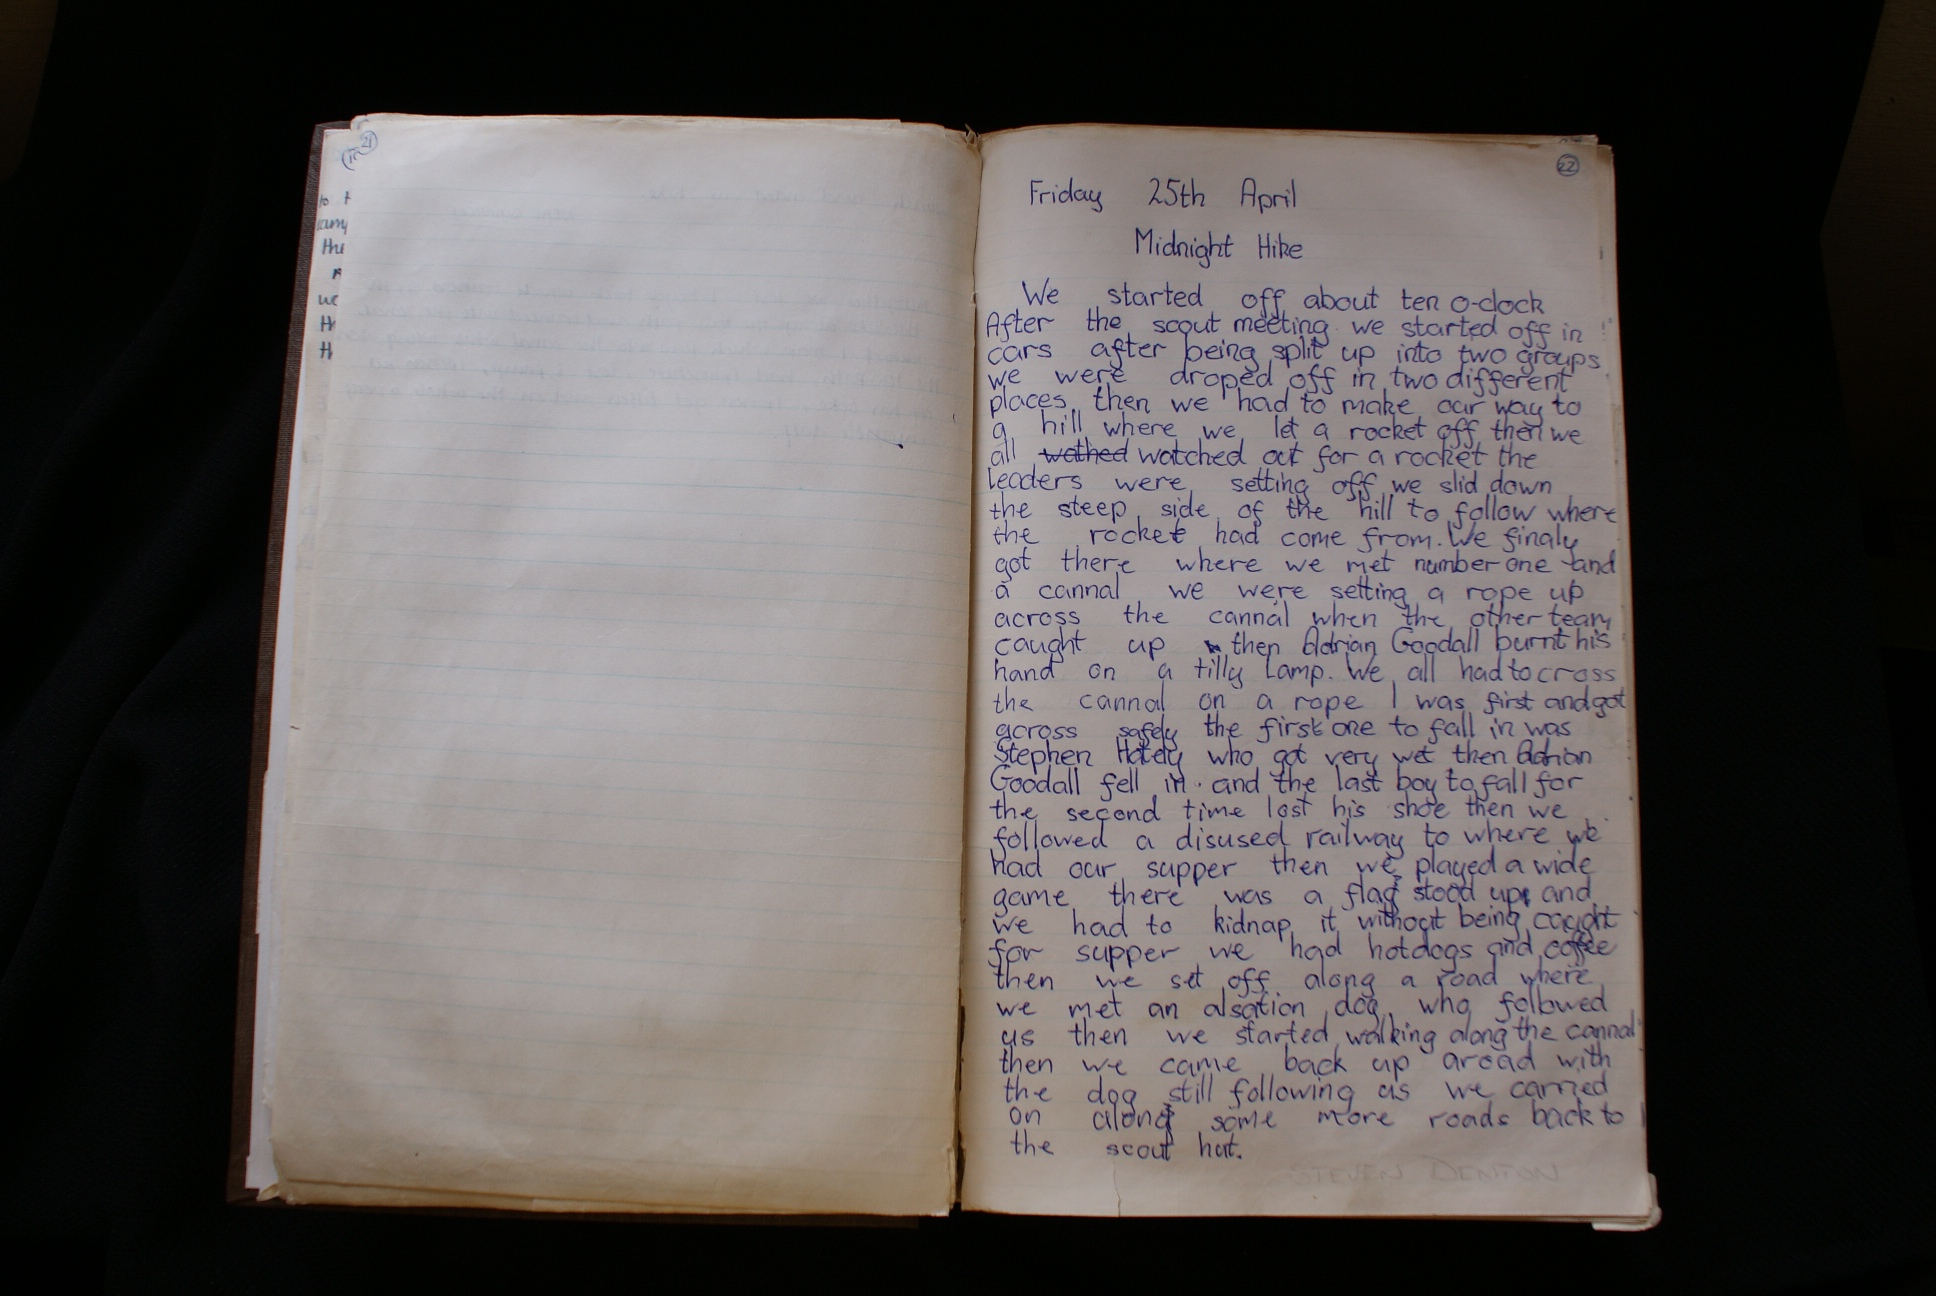 21
to t
camp
the
we
th
th
22
Friday 25th April
Midnight Hike
We started off about ten o-clock
After the scout meeting we started off in
cars after being split up into two groups
we were droped off in two different
places then we had to make our way to
a hill where we let a rocket off then we
all wathed watched out for a rocket the
leaders were setting off we slid down
the steep side of the hill to follow where
the rocket had come from. We finaly
got there where we met number one and
a cannal we were setting a rope up
across the cannal when the other team
caught up then Adrian Goodall burnt his
hand on a tilly lamp. We all had to cross
the cannal on a rope I was first and got
across safely the first one to fall in was
Stephen Hately who got very wet then Adrian
Goodall fell in. and the last boy to fall for
the second time lost his shoe then we
followed a disused railway to where we
had our supper then we played a wide
game there was a flag stood up and
we had to kidnap it without being caught
for supper we had hotdogs and coffee
then we set off along a road where
we met an alsation dog who followed
us then we started walking along the cannal
then we came back up aroad with
the dog still following us we carried
on along some more roads back to
the scout hut.
STEVEN DENTON